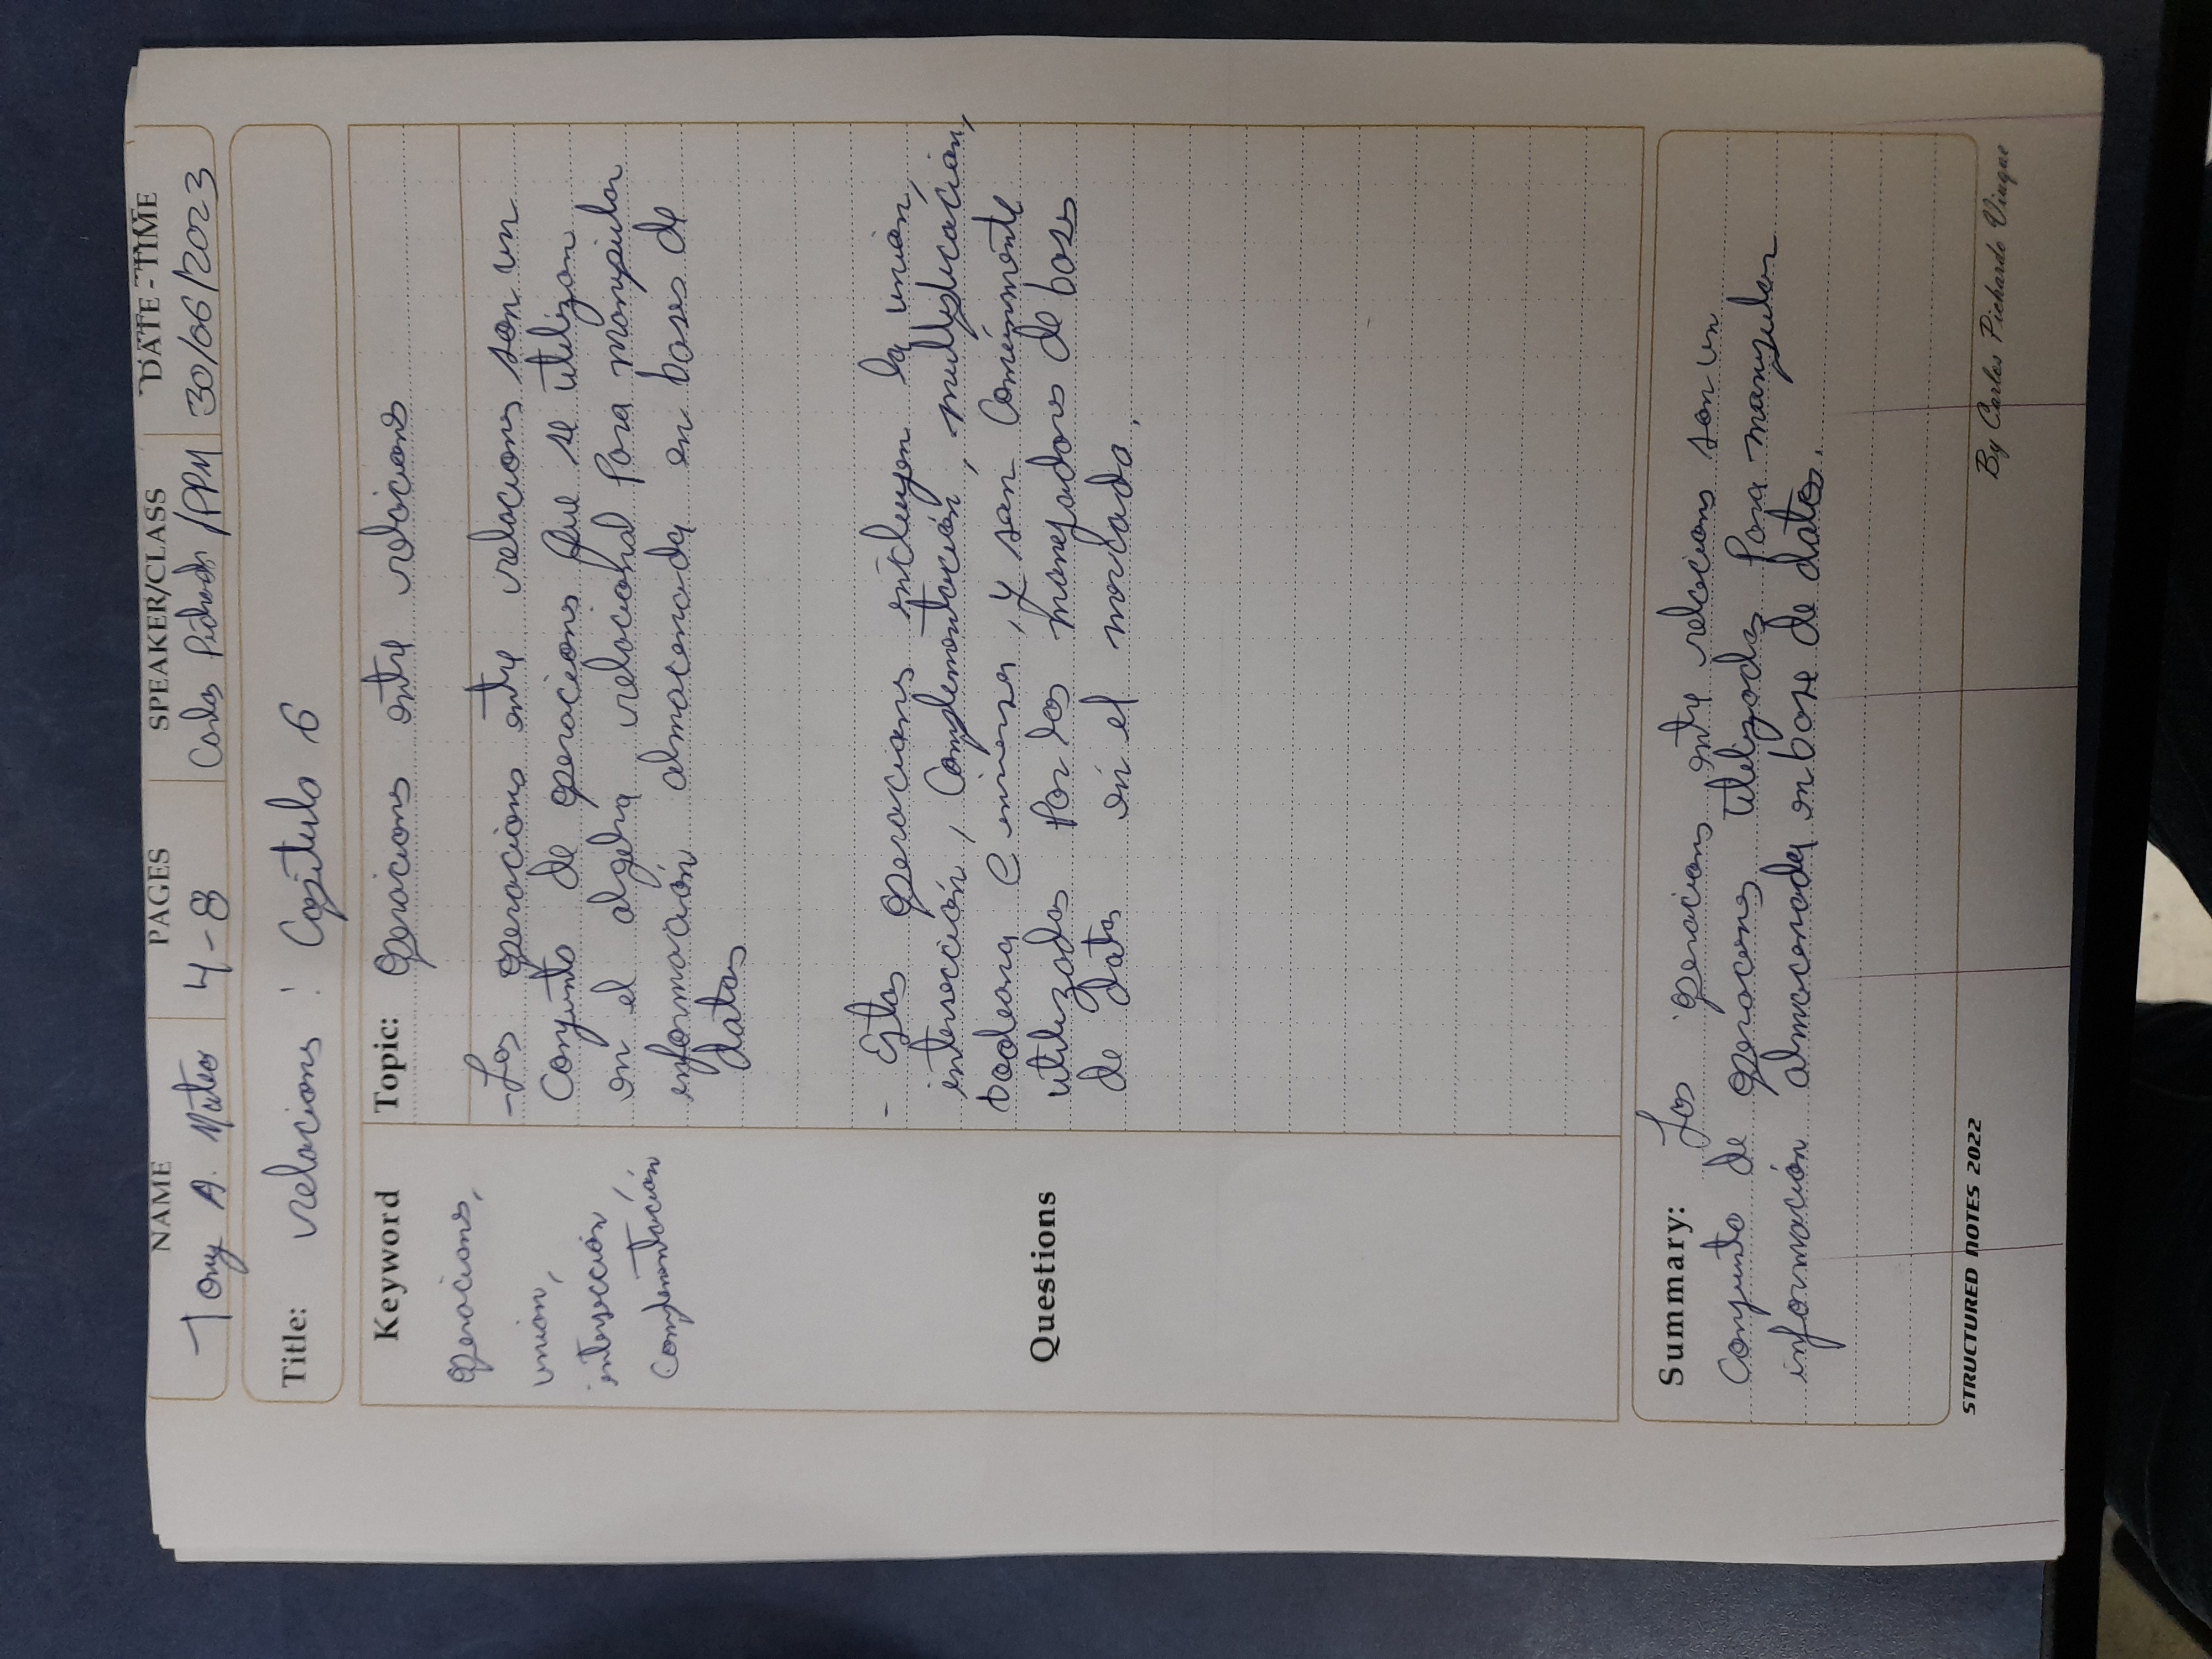 NAME PAGES SPEAKER/CLASS DATE-TIME
Tony A. Mateo 4-8 Carlos Pichardo /PPM 30/06/2023
Title: relaciones: Capitulo 6
Keyword
operaciones,
unión,
intersección,
Complementación
Topic: Operaciones entre relaciones
-Las operaciones entre relaciones son un
Conjunto de operaciones que se utilizan
en el algebra relacional para manipular
información almacenada en bases de
datos
- Estas operaciones incluyen la unión,
intersección, Complementación, multiplicación,
booleana e inversa, y son Comúnmente
utilizadas por los manejadores de bases
de datos en el mercado.
Questions
Summary: Las operaciones entre relaciones son un
Conjunto de operaciones utilizadas para manipular
información almacenada en base de datos.
STRUCTURED NOTES 2022
By Carlos Pichardo Viuque